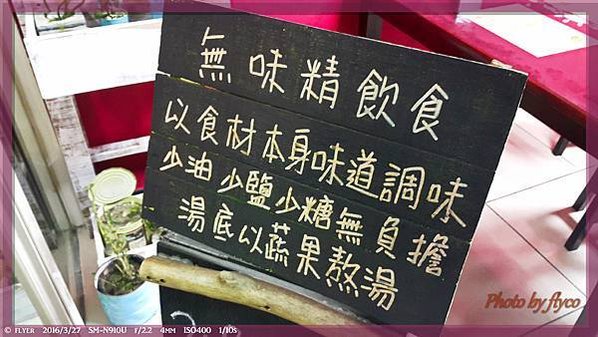 無味精飲食
以食材本身味道調味
少油少鹽少糖無負擔
湯底以蔬果熬湯
Photo by flyco
© FLYER 2016/3/27 SM-N910U F/2.2 4MM ISO400 1/10S